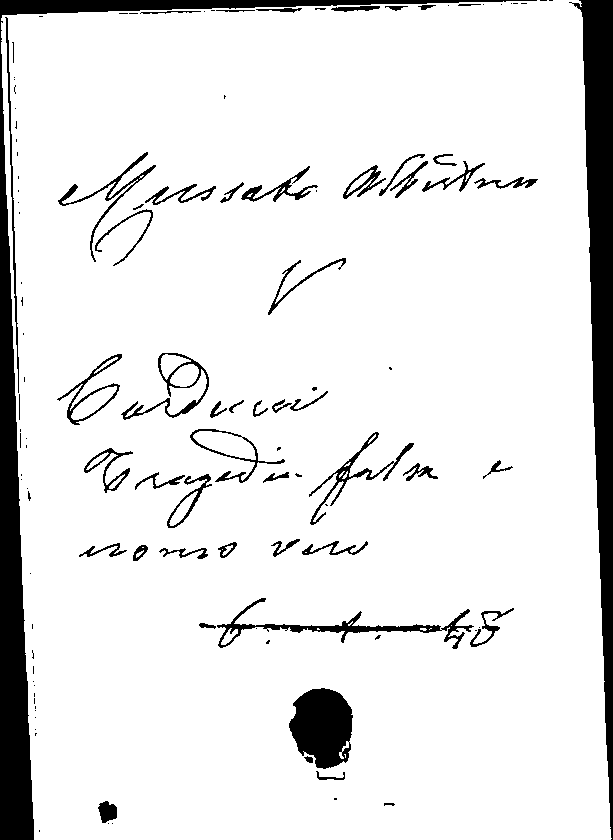 Mussato Albertino
V
Carducci
Tragedia falsa e
uomo vero
6. 1. 48